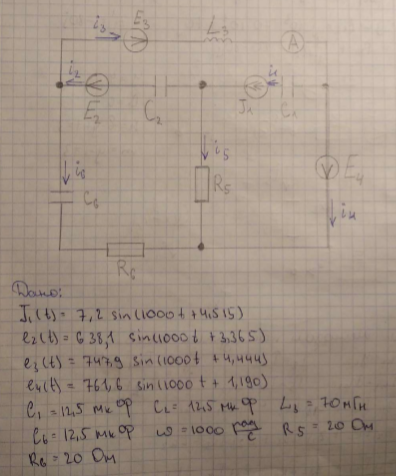 i₃ E₃ L₃ A
i₂ E₂ C₂ J₁ i₁ C₁
i₆ C₆ i₅ R₅ E₄ i₄
R₆
Дано:
J₁(t) = 7,2 sin(1000t + 4,515)
e₂(t) = 638,1 sin(1000t + 3,365)
e₃(t) = 747,9 sin(1000t + 4,444)
e₄(t) = 761,6 sin(1000t + 1,190)
C₁ = 12,5 мкФ C₂ = 12,5 мкФ L₃ = 70 мГн
C₆ = 12,5 мкФ ω = 1000 рад/с R₅ = 20 Ом
R₆ = 20 Ом